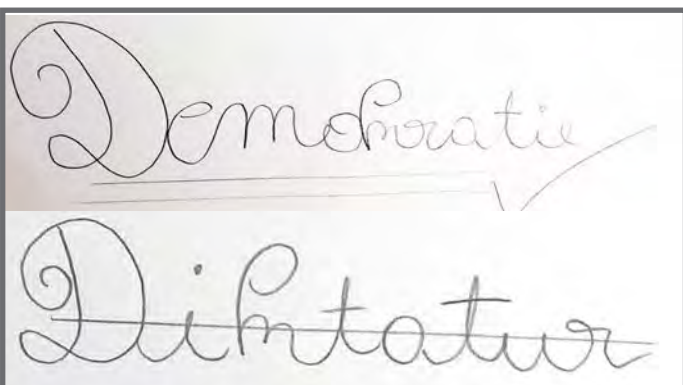 Demokratie
Diktatur